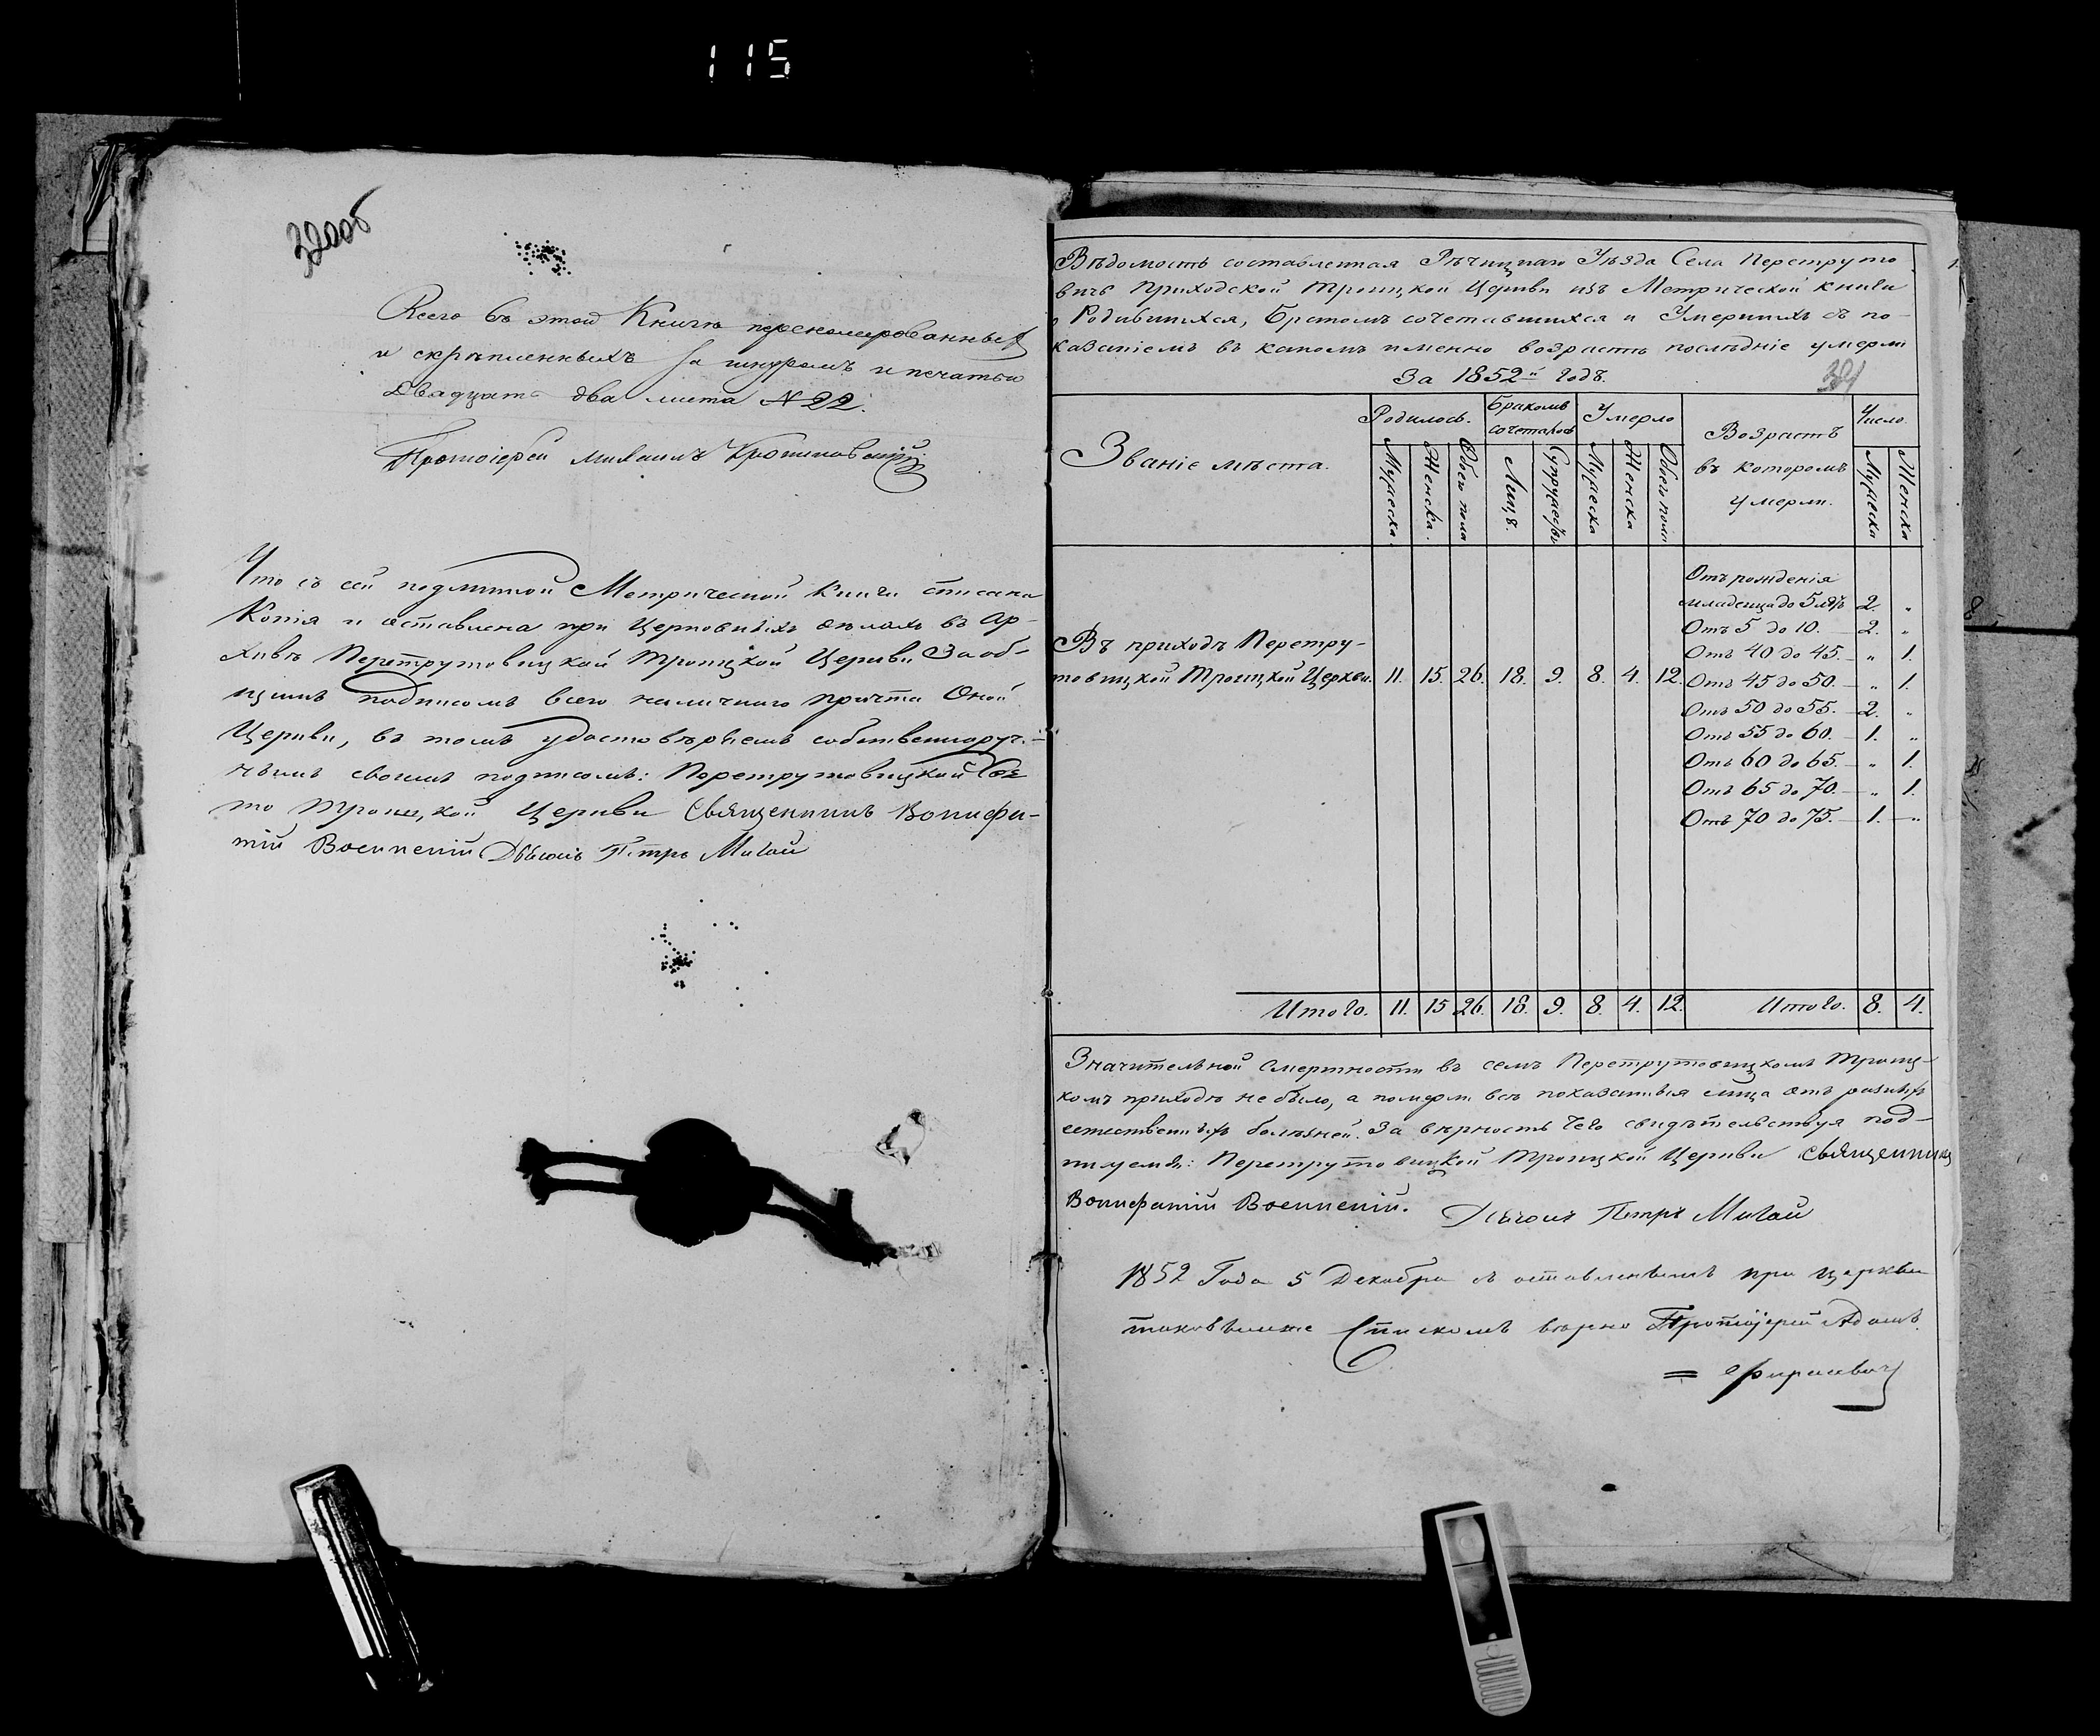 115
320об
Всего въ этой Книгѣ перенумерованныхъ
и скрѣпленныхъ за шнуромъ и печатью
Двадцать два листа № 22.
Протоіерей Михаилъ
Что съ сей подлинной Метрической Книги списана
Копія и оставлена при Церковныхъ дѣлахъ въ Ар-
хивѣ Перетрутовицкой Троицкой Церкви За об-
щимъ подписомъ всего наличнаго причта Оной
Церкви, въ томъ удостовѣряемъ собственноруч-
нымъ своимъ подписомъ: Перетрутовицкой Свя-
то Троицкой Церкви Священникъ Вонифа-
тій Дьячокъ Петръ Мигай
Вѣдомость составленная Рѣчицкаго Уѣзда Села Перетруто
вичъ Приходской Троицкой Церкви изъ Метрической книги
о Родившихся, Бракомъ сочетавшихся и Умершихъ съ по-
казаніемъ въ какомъ именно возрастѣ послѣдніе умерли
За 1852й годъ.
Званіе мѣста.
Родилось.
Бракомъ сочеталось
Умерло
Возрастъ въ которомъ умерли.
Число.
Мужеска.
Женска.
Обоего пола
Лицъ.
Супружествъ
Мужеска
Женска
Обоего пола
Мужеска
Женска
Отъ рожденія
младенца до 5 лѣтъ 2. „
Отъ 5 до 10. 2. „
Въ приходѣ Перетру-
Отъ 40 до 45. „ 1.
товицкой Троицкой Церкви. 11. 15. 26. 18. 9. 8. 4. 12. Отъ 45 до 50. „ 1.
Отъ 50 до 55. 2. „
Отъ 55 до 60. 1. „
Отъ 60 до 65. „ 1.
Отъ 65 до 70. „ 1.
Отъ 70 до 75. 1. „
Итого. 11. 15 26. 18. 9. 8. 4. 12. Итого. 8. 4.
Значительной смертности въ семъ Перетрутовицкомъ Троиц-
комъ приходѣ не было, а померли всѣ показанныя лица отъ разныхъ
естественныхъ болѣзней. За вѣрность чего свидѣтельствуя под-
писуемся: Перетрутовицкой Троицкой Церкви Священникъ
Вонифатій Дьячокъ Петръ Мигай
1852 Года 5 Декабря съ оставленнымъ при церкви
таковымже Спискомъ вѣрно Протоіерей Адамъ